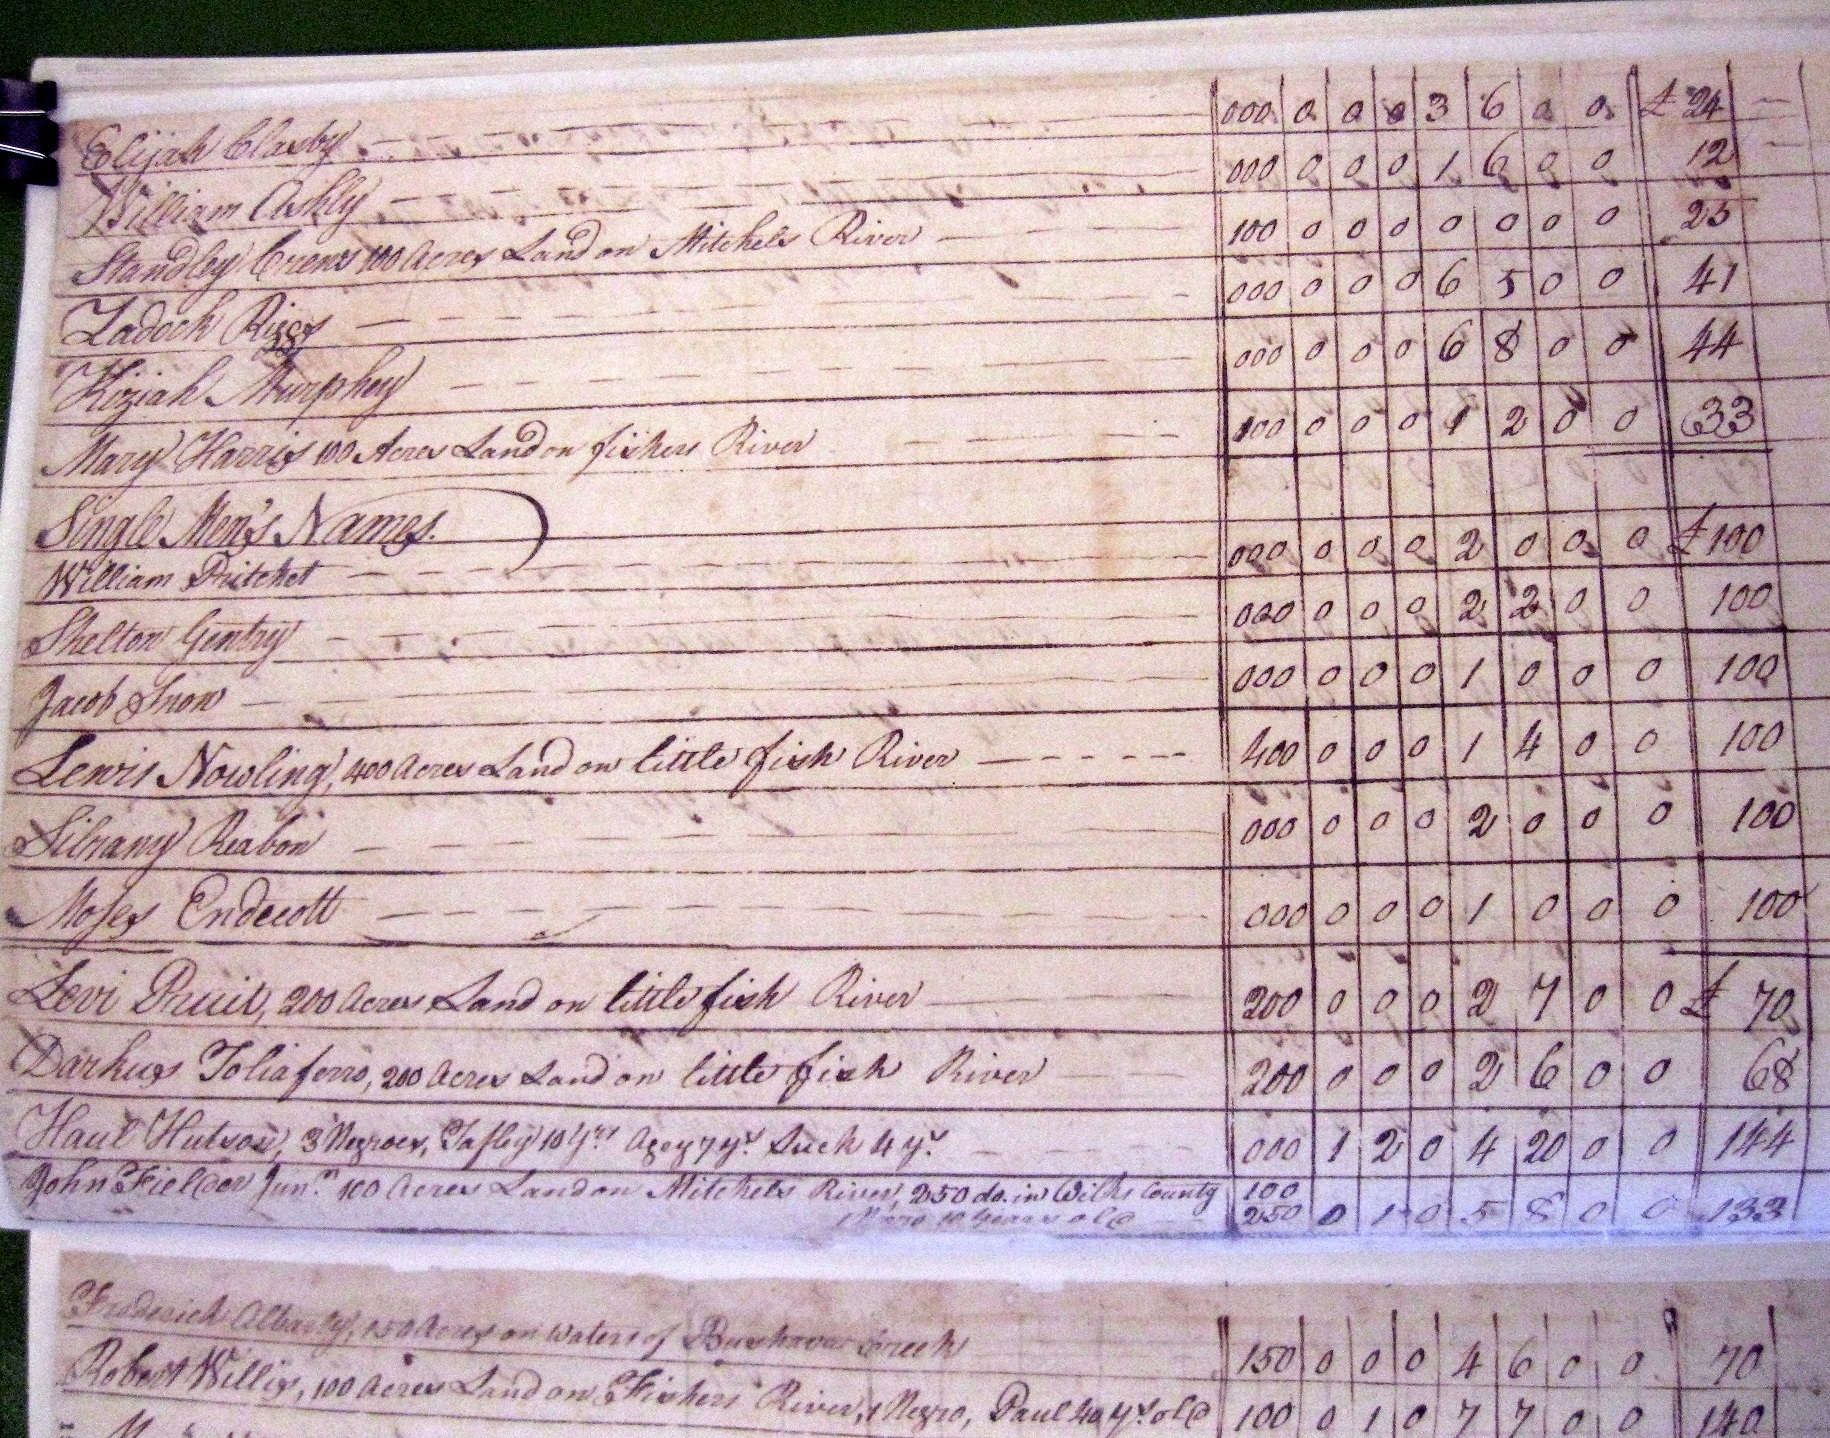 Elijah Clasby 000 0 0 0 3 6 0 0 £ 24
William Ashly 000 0 0 0 1 6 0 0 12
Standley Crews 100 Acres Land on Mitchels River 100 0 0 0 0 0 0 0 25
Zadock Riggs 000 0 0 0 6 5 0 0 41
Keziah Murphey 000 0 0 0 6 8 0 0 44
Mary Harris 100 Acres Land on fishers River 100 0 0 0 1 2 0 0 33
Single Men's Names.
William Pritchet 000 0 0 0 2 0 0 0 £ 100
Shelton Gentry 000 0 0 0 2 2 0 0 100
Jacob Snow 000 0 0 0 1 0 0 0 100
Lewis Nowling, 400 Acres Land on little fish River 400 0 0 0 1 4 0 0 100
Reabon 000 0 0 0 2 0 0 0 100
Moses Endecott 000 0 0 0 1 0 0 0 100
Levi Pruit, 200 Acres Land on little fish River 200 0 0 0 2 7 0 0 £ 70
Darkus Toliaferro, 200 Acres Land on little fish River 200 0 0 0 2 6 0 0 68
Hutson, 3 Negroes, 10 yrs 7 yr. Suck 4 yr 000 1 2 0 4 20 0 0 144
John Fielder Junr. 100 Acres Land on Mitchels River, 250 do. in Wilks County 100
1 Negro 10 Years old 250 0 1 0 5 8 0 0 133
Frederick 150 Acres on waters of Creek 150 0 0 0 4 6 0 0 70
Robert Willis, 100 Acres Land on Fishers River, 1 Negro, Paul 40 yr old 100 0 1 0 7 7 0 0 140